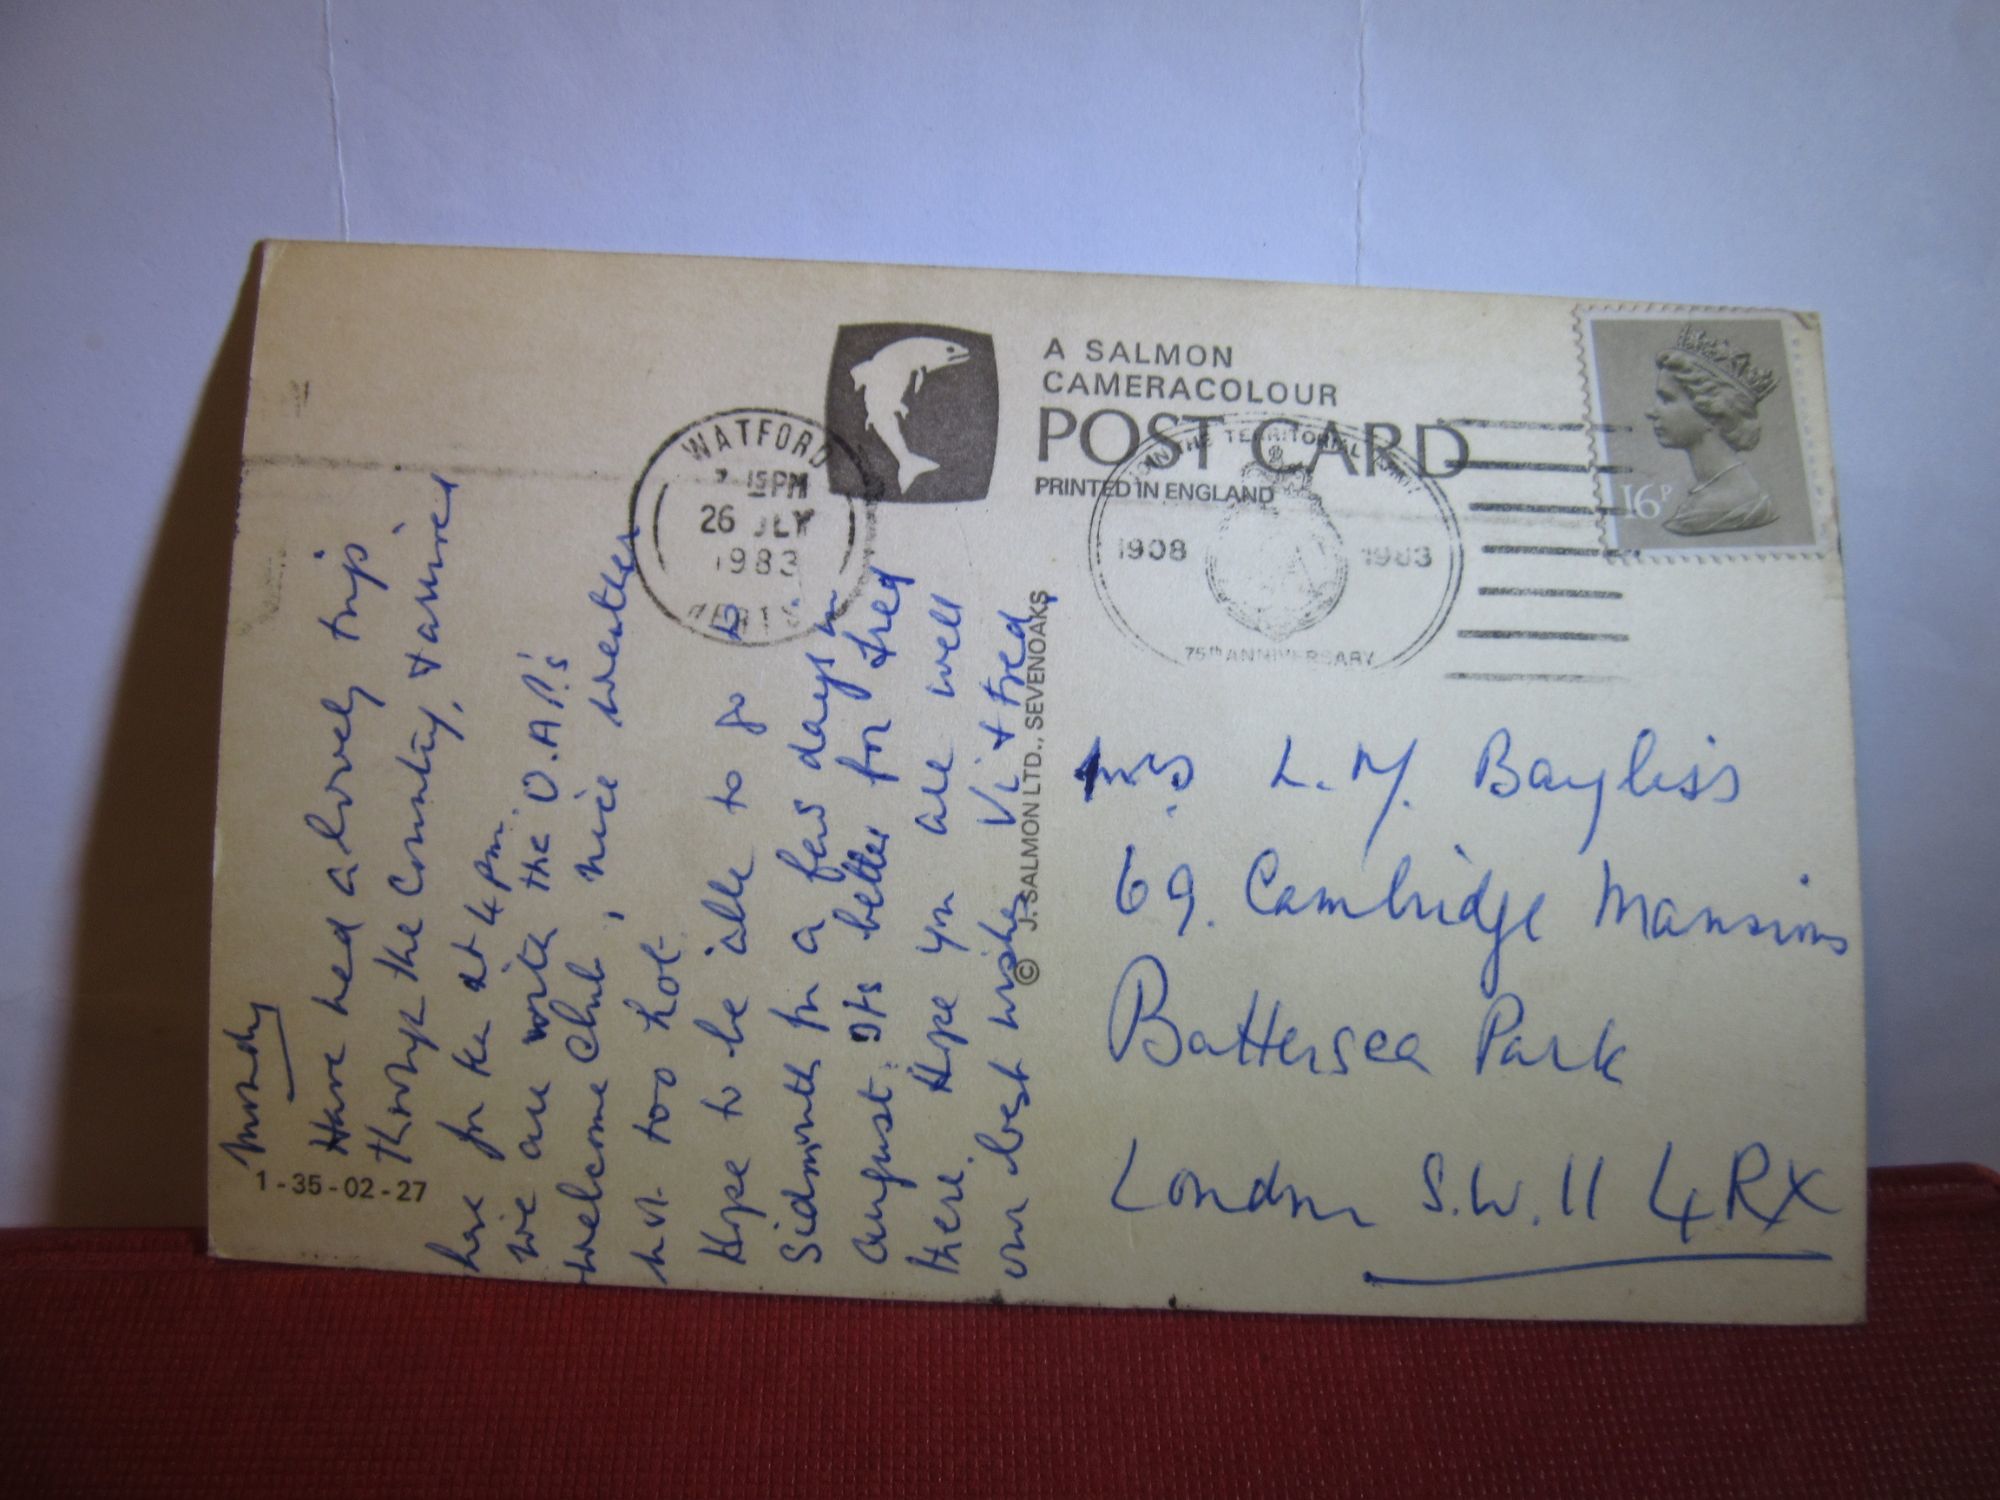 Monday
Have had a lovely trip
through the Country, & arrived
here for tea at 4 pm.
We are with the O.A.P.'s
Welcome Club, nice weather
not too hot.
Hope to be able to go to
Sidmouth for a few days in
August. Its better for Fred
there. Hope you are well
our best wishes Vi & Fred
1-35-02-27
WATFORD
7 15 PM
26 JLY
1983
A SALMON
CAMERACOLOUR
POST CARD
PRINTED IN ENGLAND
JOIN THE TERRITORIAL ARMY
1908 1983
75th ANNIVERSARY
16P
© J. SALMON LTD., SEVENOAKS
Mrs L. M. Bayliss
69. Cambridge Mansions
Battersea Park
London S.W. 11 4RX